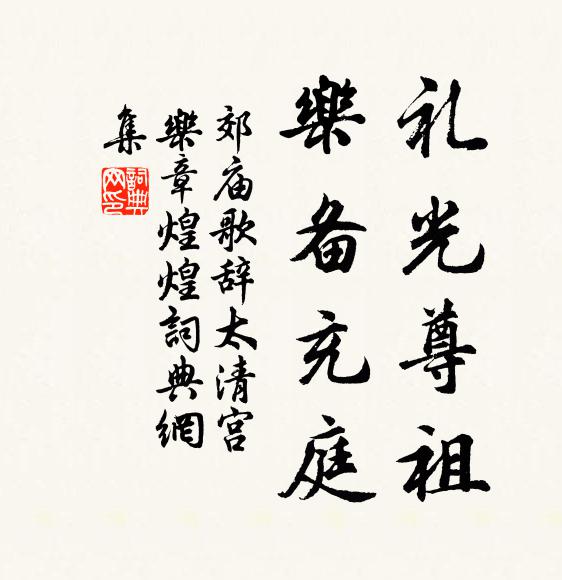 礼光尊祖
樂备充庭
郊庙歌辞太清宫
樂章煌煌詞典網
集
詞典
网印